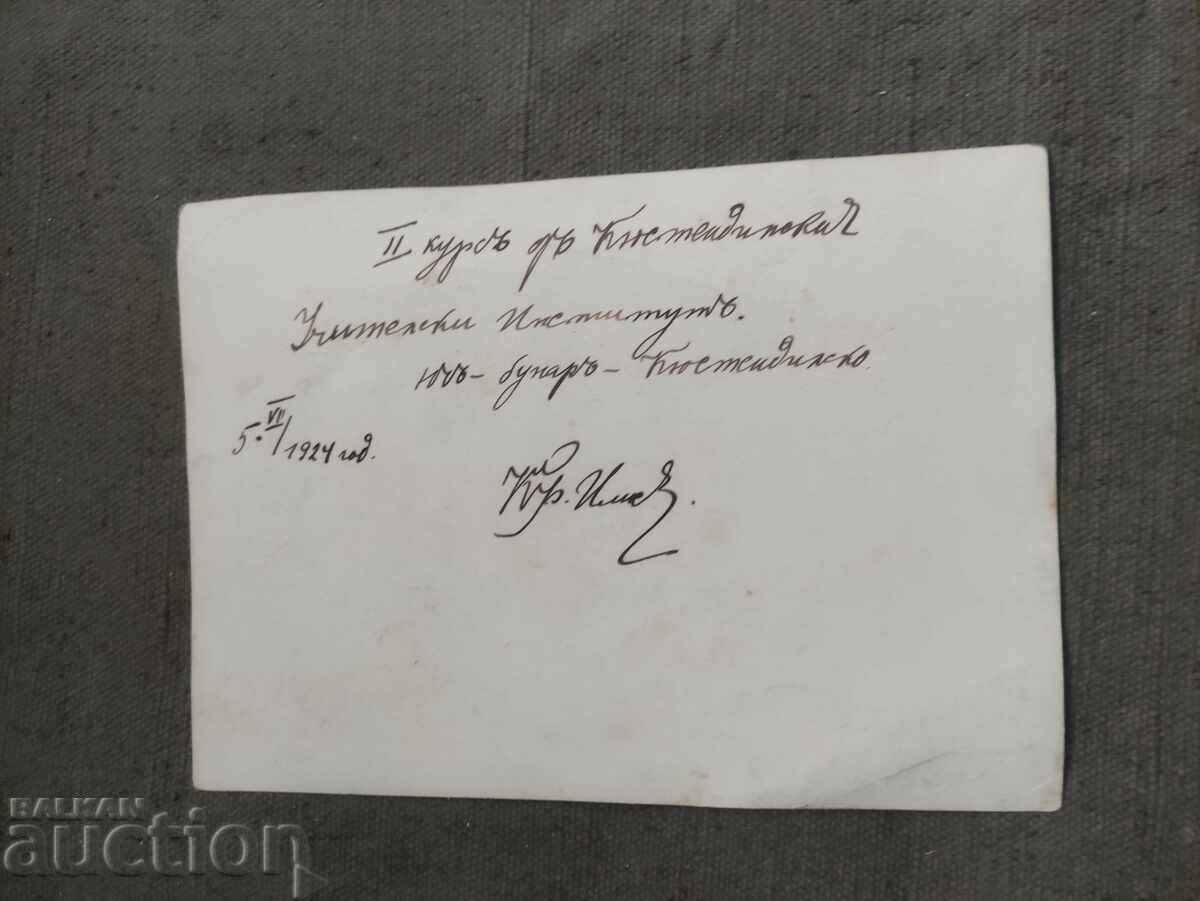 II курсъ отъ Кюстендилския
Учителски Институтъ.
Юсъ - бунаръ - Кюстендилско.
5.VII/1924 год.
Кр.
BALKAN
auction